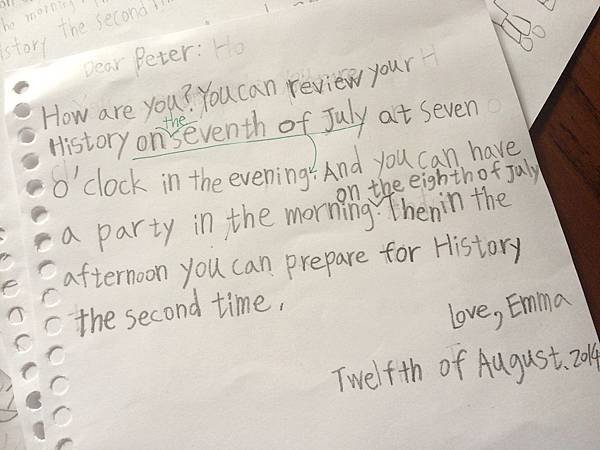 the morning
the second
istory
Dear Peter:
How are you? You can review your
History on the seventh of July at seven
o'clock in the evening. And you can have
a party in the morning on the eighth of July. Then in the
afternoon you can prepare for History
the second time.
Love, Emma
Twelfth of August. 2014